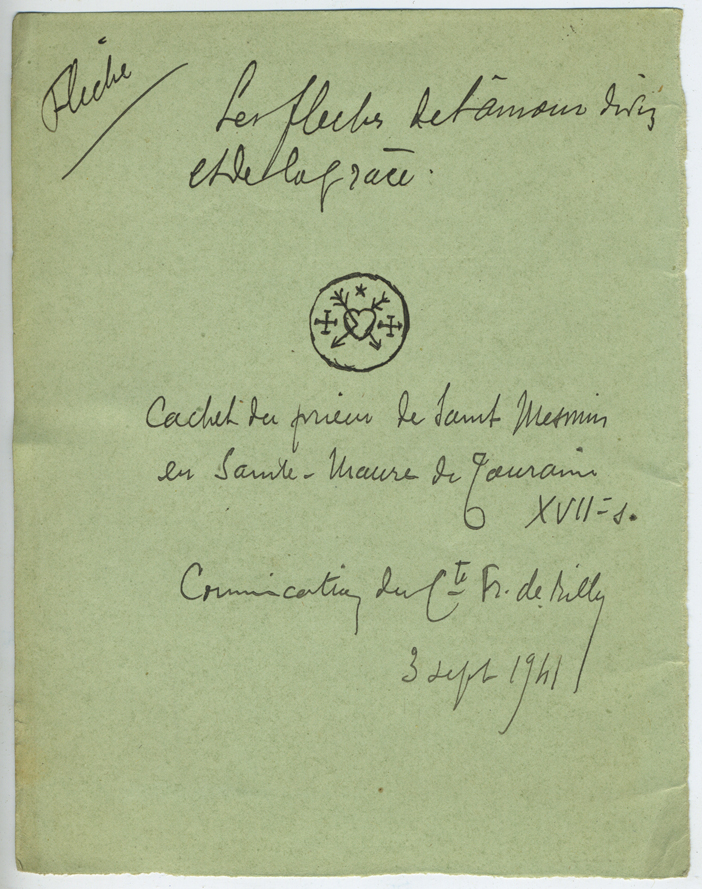 Flèche
Les flèches de l'amour divin
et de la grâce.
Cachet du prieur de Saint Mesmin
en Sainte-Maure de Touraine
XVII= s.
Communication du Cte Fr. de Rilly
3 sept 1941